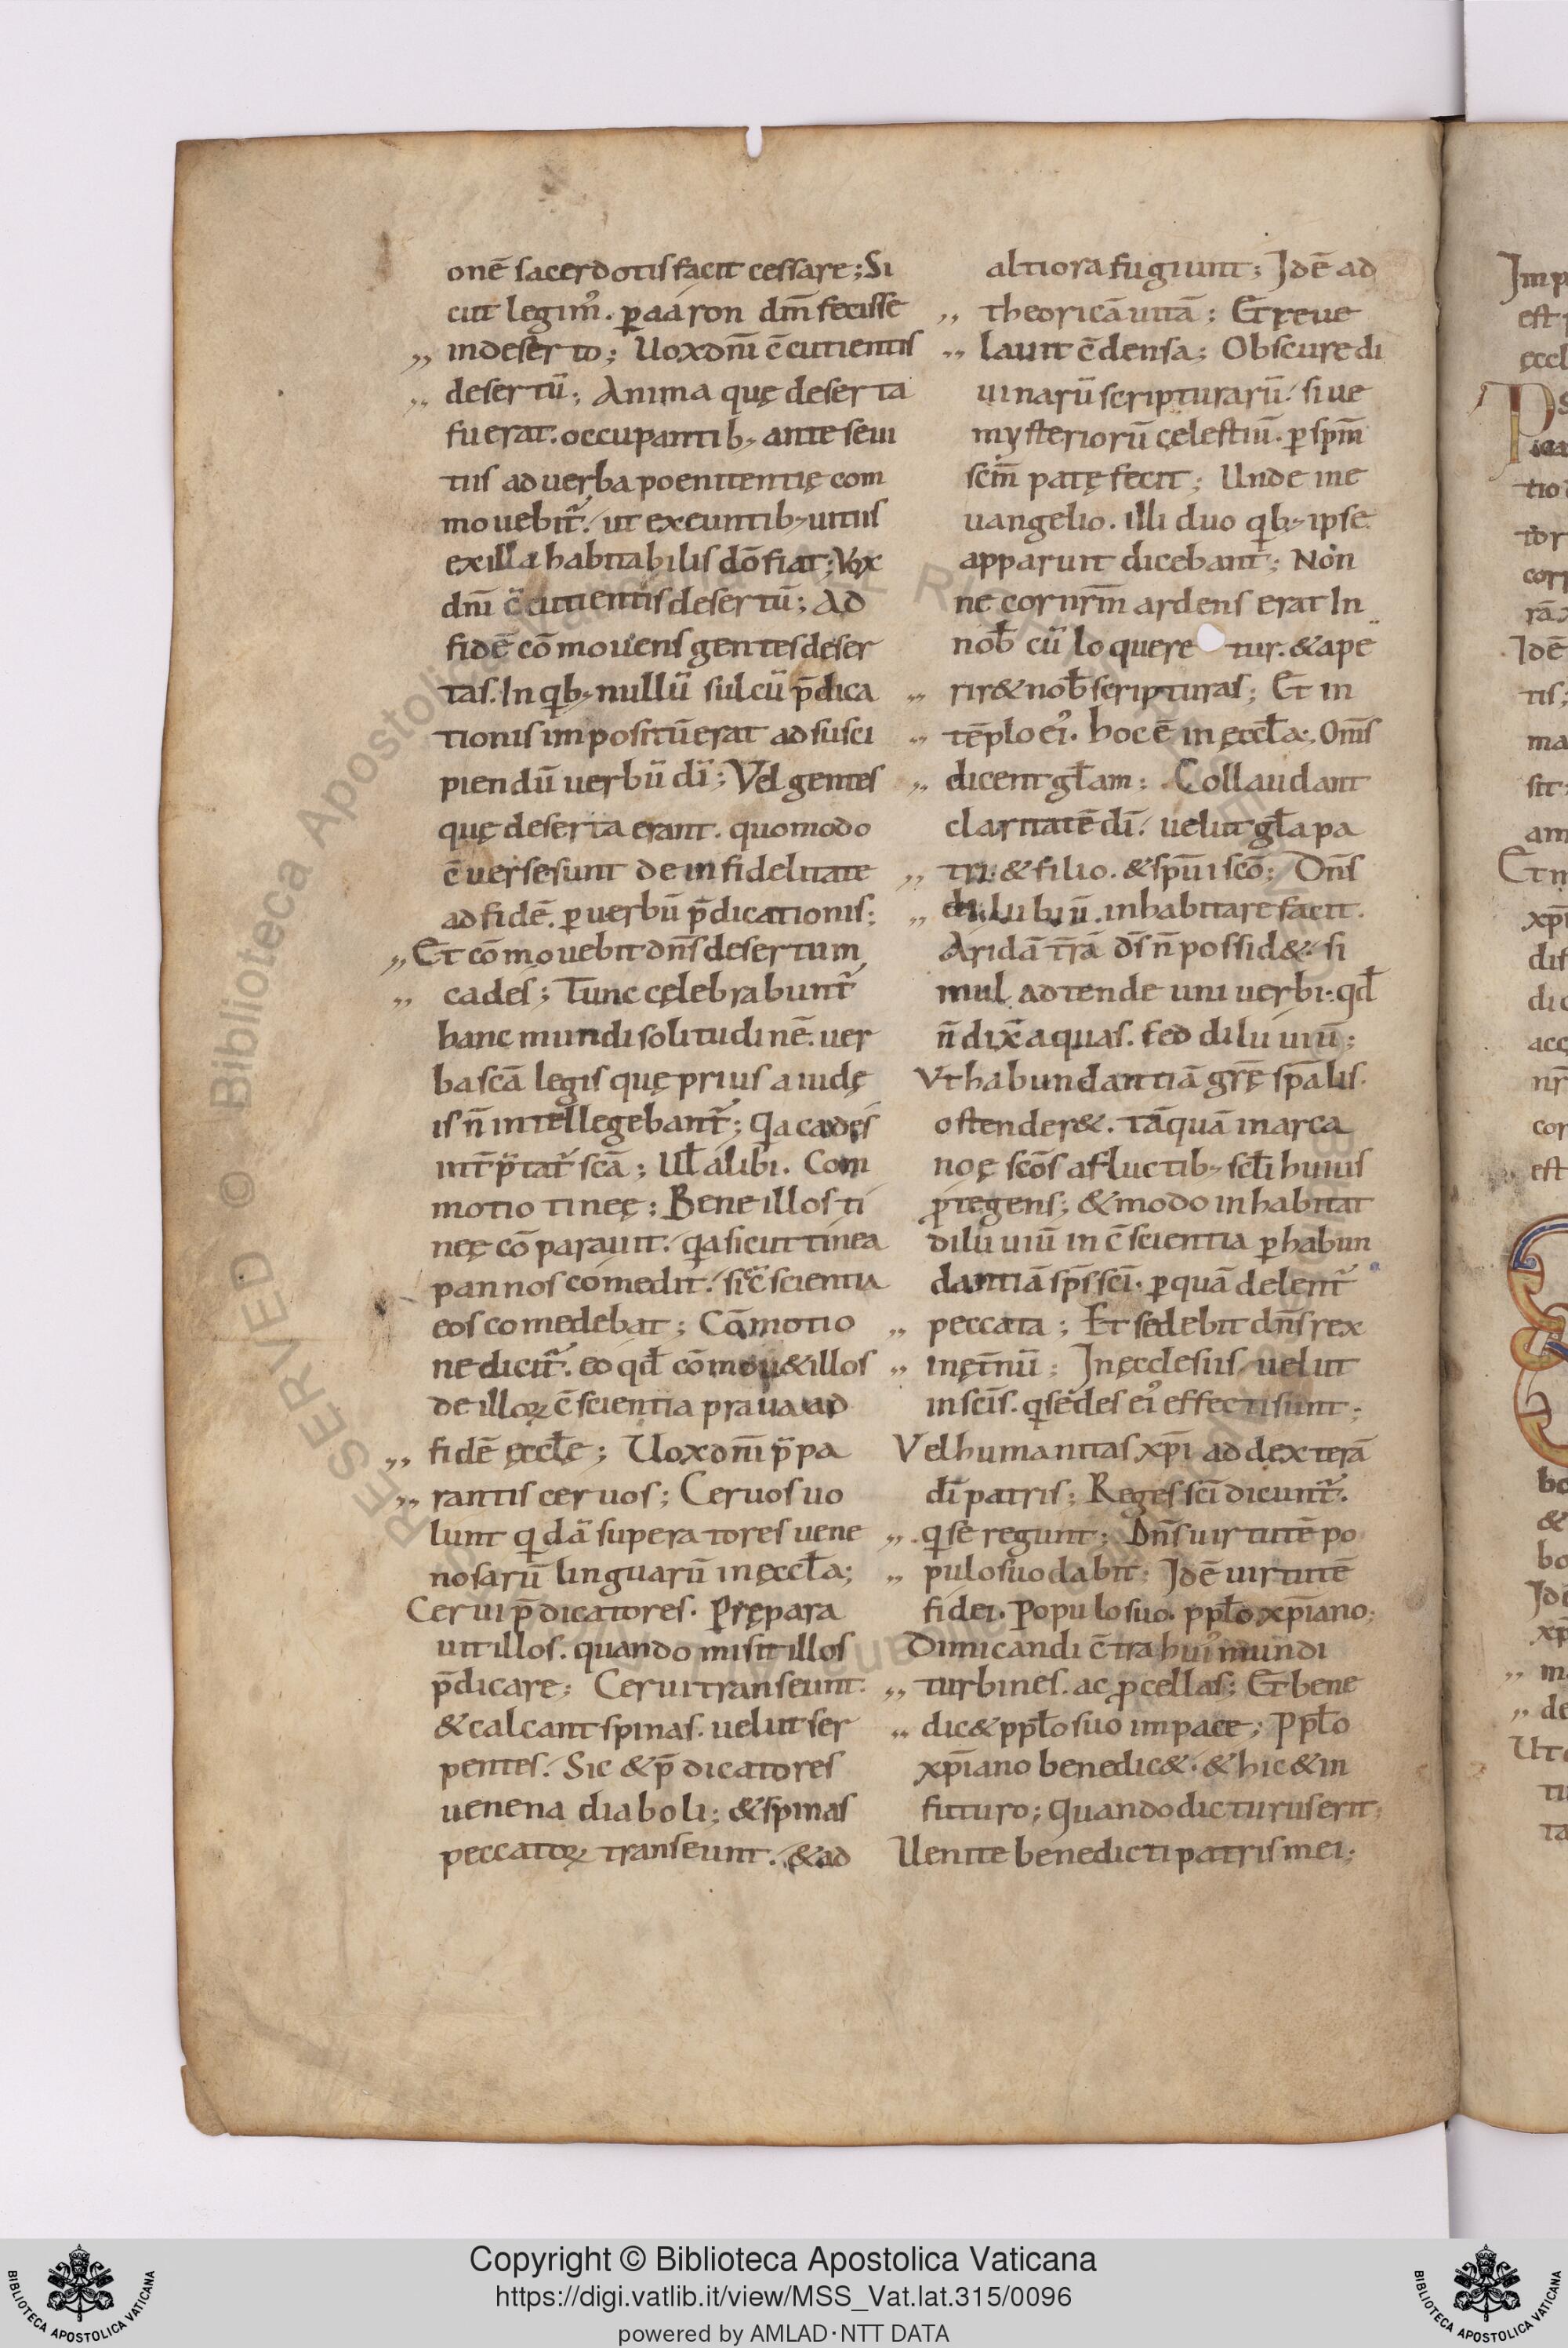 onē sacerdotis facit cessare; Si
cut legim᷒. ꝑ aaron dm̄ fecisse
„ in deserto; Uox dnī c̄cutientis
„ desertū; Anima quę deserta
fuerat. occupantib; ante seui
tiis ad uerba poenitentię com
mouebit᷑. ut exeuntib; uitiis
ex illa habitabilis dō fiat; Vox
dnī c̄cutientis desertū; Ad
fidē cōmouens gentes deser
tas. In qib; nullū sulcū p̄dica
tionis impositū erat ad susci
piendū uerbū dī; Vel gentes
quę deserta erant. quomodo
c̄uersę sunt de infidelitate
ad fidē. ꝑ uerbū p̄dicationis;
„ Et cōmouebit dn̄s desertum
„ cades; Tunc cęlebrabunt᷑
hanc mundi solitudinē. uer
ba scā legis quę prius a iudę
is n̄ intellegebant᷑; qia cades
int̄p̄tat᷑ scā; Ul̄ alibi. Com
motio tineę; Bene illos ti
neę cōparauit. qia sicut tinea
pannos comedit. sic c̄scientia
eos comedebat; Cōmotio
ne dicit᷑. eo qd̄ cōmou& illos
de illoꝝ c̄scientia praua ad
„ fidē ęccl̄ę; Uox dnī p̄pa
„ rantis ceruos; Ceruos uo
lunt qidā superatores uene
nosarū linguarū in ęccl̄a;
Cerui p̄dicatores. Prępara
uit illos. quando misit illos
p̄dicare; Cerui transeunt.
& calcant spinas. uelut ser
pentes. Sic & p̄dicatores
uenena diaboli; & spinas
peccatoꝝ transeunt. & ad
altiora fugiunt; Idē ad
„ theoricā uitā; Et reue
„ lauit c̄densa; Obscure di
uinarū scripturarū. siue
mysteriorū cęlestiū. ꝑ spm̄
scm̄ patęfecit; Unde in e
uangelio. illi duo qib; ipse
apparuit dicebant; Non
ne cor nrm̄ ardens erat In
nob̄ cū loquere tur. & ape
„ rir& nob̄ scripturas; Et in
„ tēplo ei᷒. hoc ē in ęccl̄a; Om̄s
„ dicent gl̄am; Collaudant
claritatē dī. uelut gl̄a pa
„ tri. & filio. & spūi scō; Dn̄s
„ diluuiū. inhabitare facit.
Aridā t̄rā dī n̄ possid&. si
mul adtende uni uerbi. qd̄
n̄ dix̄ aquas. sed diluuiū;
Vt habundantiā gr̄ę sp̄alis
ostender&. tāquā in arca
noę scōs a fluctib; scl̄i huius
ꝓtegens; & modo inhabitat
diluuiū in c̄scientia ꝑ habun
dantiā sp̄s scī. ꝑ quā delent᷑
„ peccata; Et sedebit dn̄s rex
„ in ęt̄nū; In ęcclesiis uelut
in scīs. qi sedes ei᷒ effecti sunt;
Vel humanitas xp̄i ad dexterā
dī patris; Reges scī dicunt᷑.
„ qi se regunt; Dn̄s uirtutē po
„ pulo suo dabit; Idē uirtutē
fidei. Populo suo. ppl̄o xp̄iano;
Dimicandi c̄tra hui᷒ mundi
„ turbines. ac ꝓcellas; Et bene
„ dic& ppl̄o suo in pace; Ppl̄o
xp̄iano benedic&. & hic & in
futuro; Quando dicturus erit;
Uenite benedicti patris mei;
Copyright © Biblioteca Apostolica Vaticana
https://digi.vatlib.it/view/MSS_Vat.lat.315/0096
powered by AMLAD·NTT DATA
BIBLIOTECA APOSTOLICA VATICANA
BIBLIOTECA APOSTOLICA VATICANA